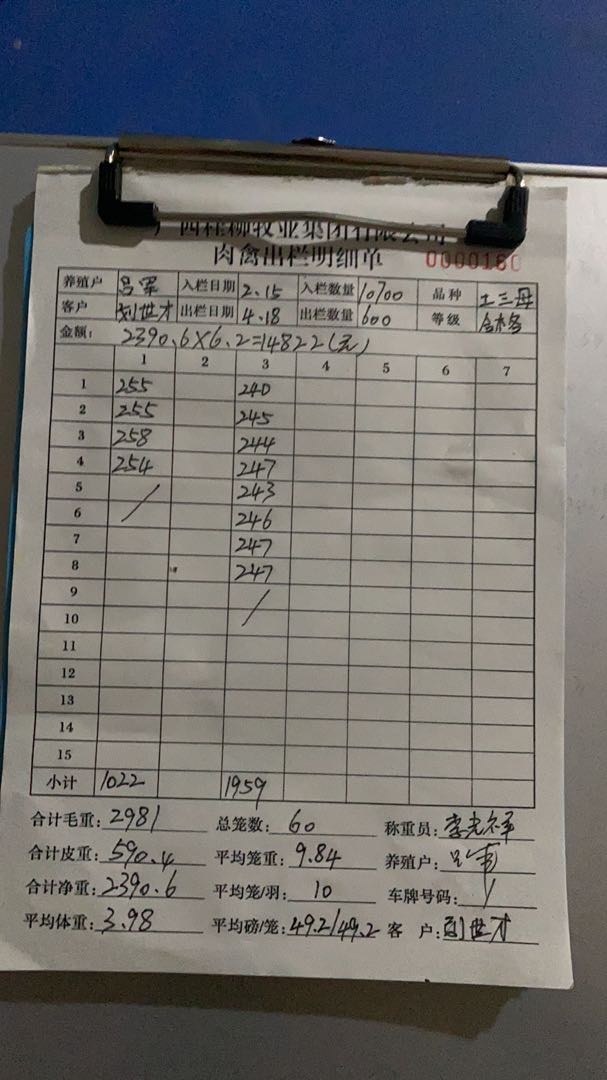 广西桂柳牧业集团有限公司
肉禽出栏明细单 0000180
养殖户 吕军 入栏日期 2.15 入栏数量 10700 品种 土三母
客户 刘世才 出栏日期 4.18 出栏数量 600 等级 合格
金额: 2390.6×6.2=14822(元)
1 2 3 4 5 6 7
1 255 240
2 255 245
3 258 244
4 254 247
5 / 243
6 246
7 247
8 247
9 /
10
11
12
13
14
15
小计 1022 1959
合计毛重: 2981 总笼数: 60 称重员: 李光祥
合计皮重: 590.4 平均笼重: 9.84 养殖户: 吕军
合计净重: 2390.6 平均笼/羽: 10 车牌号码: /
平均体重: 3.98 平均磅/笼: 49.2/49.2 客 户: 刘世才